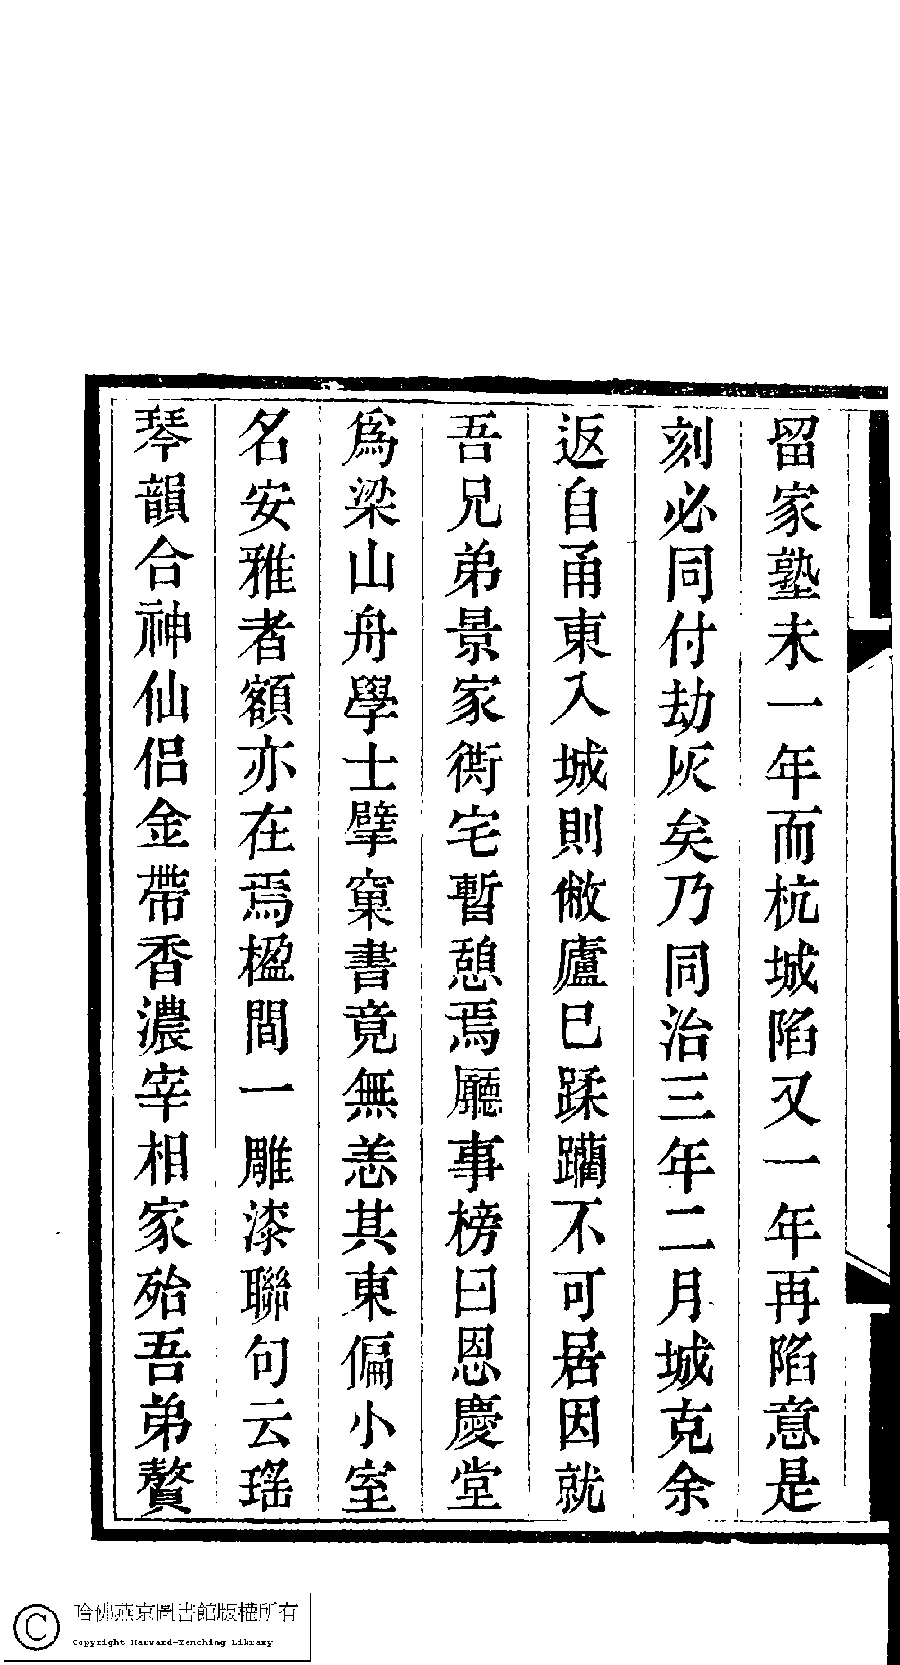 留家塾未一年而杭城陷又一年再陷意是
刻必同付劫灰矣乃同治三年二月城克余
返自甬東入城則敝廬已蹂躪不可居因就
吾兄弟景家衖宅暫憩焉廳事榜曰恩慶堂
爲梁山舟學士擘窠書竟無恙其東偏小室
名安雅者額亦在焉楹間一雕漆聯句云瑤
琴韻合神仙侣金帶香濃宰相家殆吾弟贅
哈佛燕京圖書館版權所有
Copyright Harvard-Yenching Library